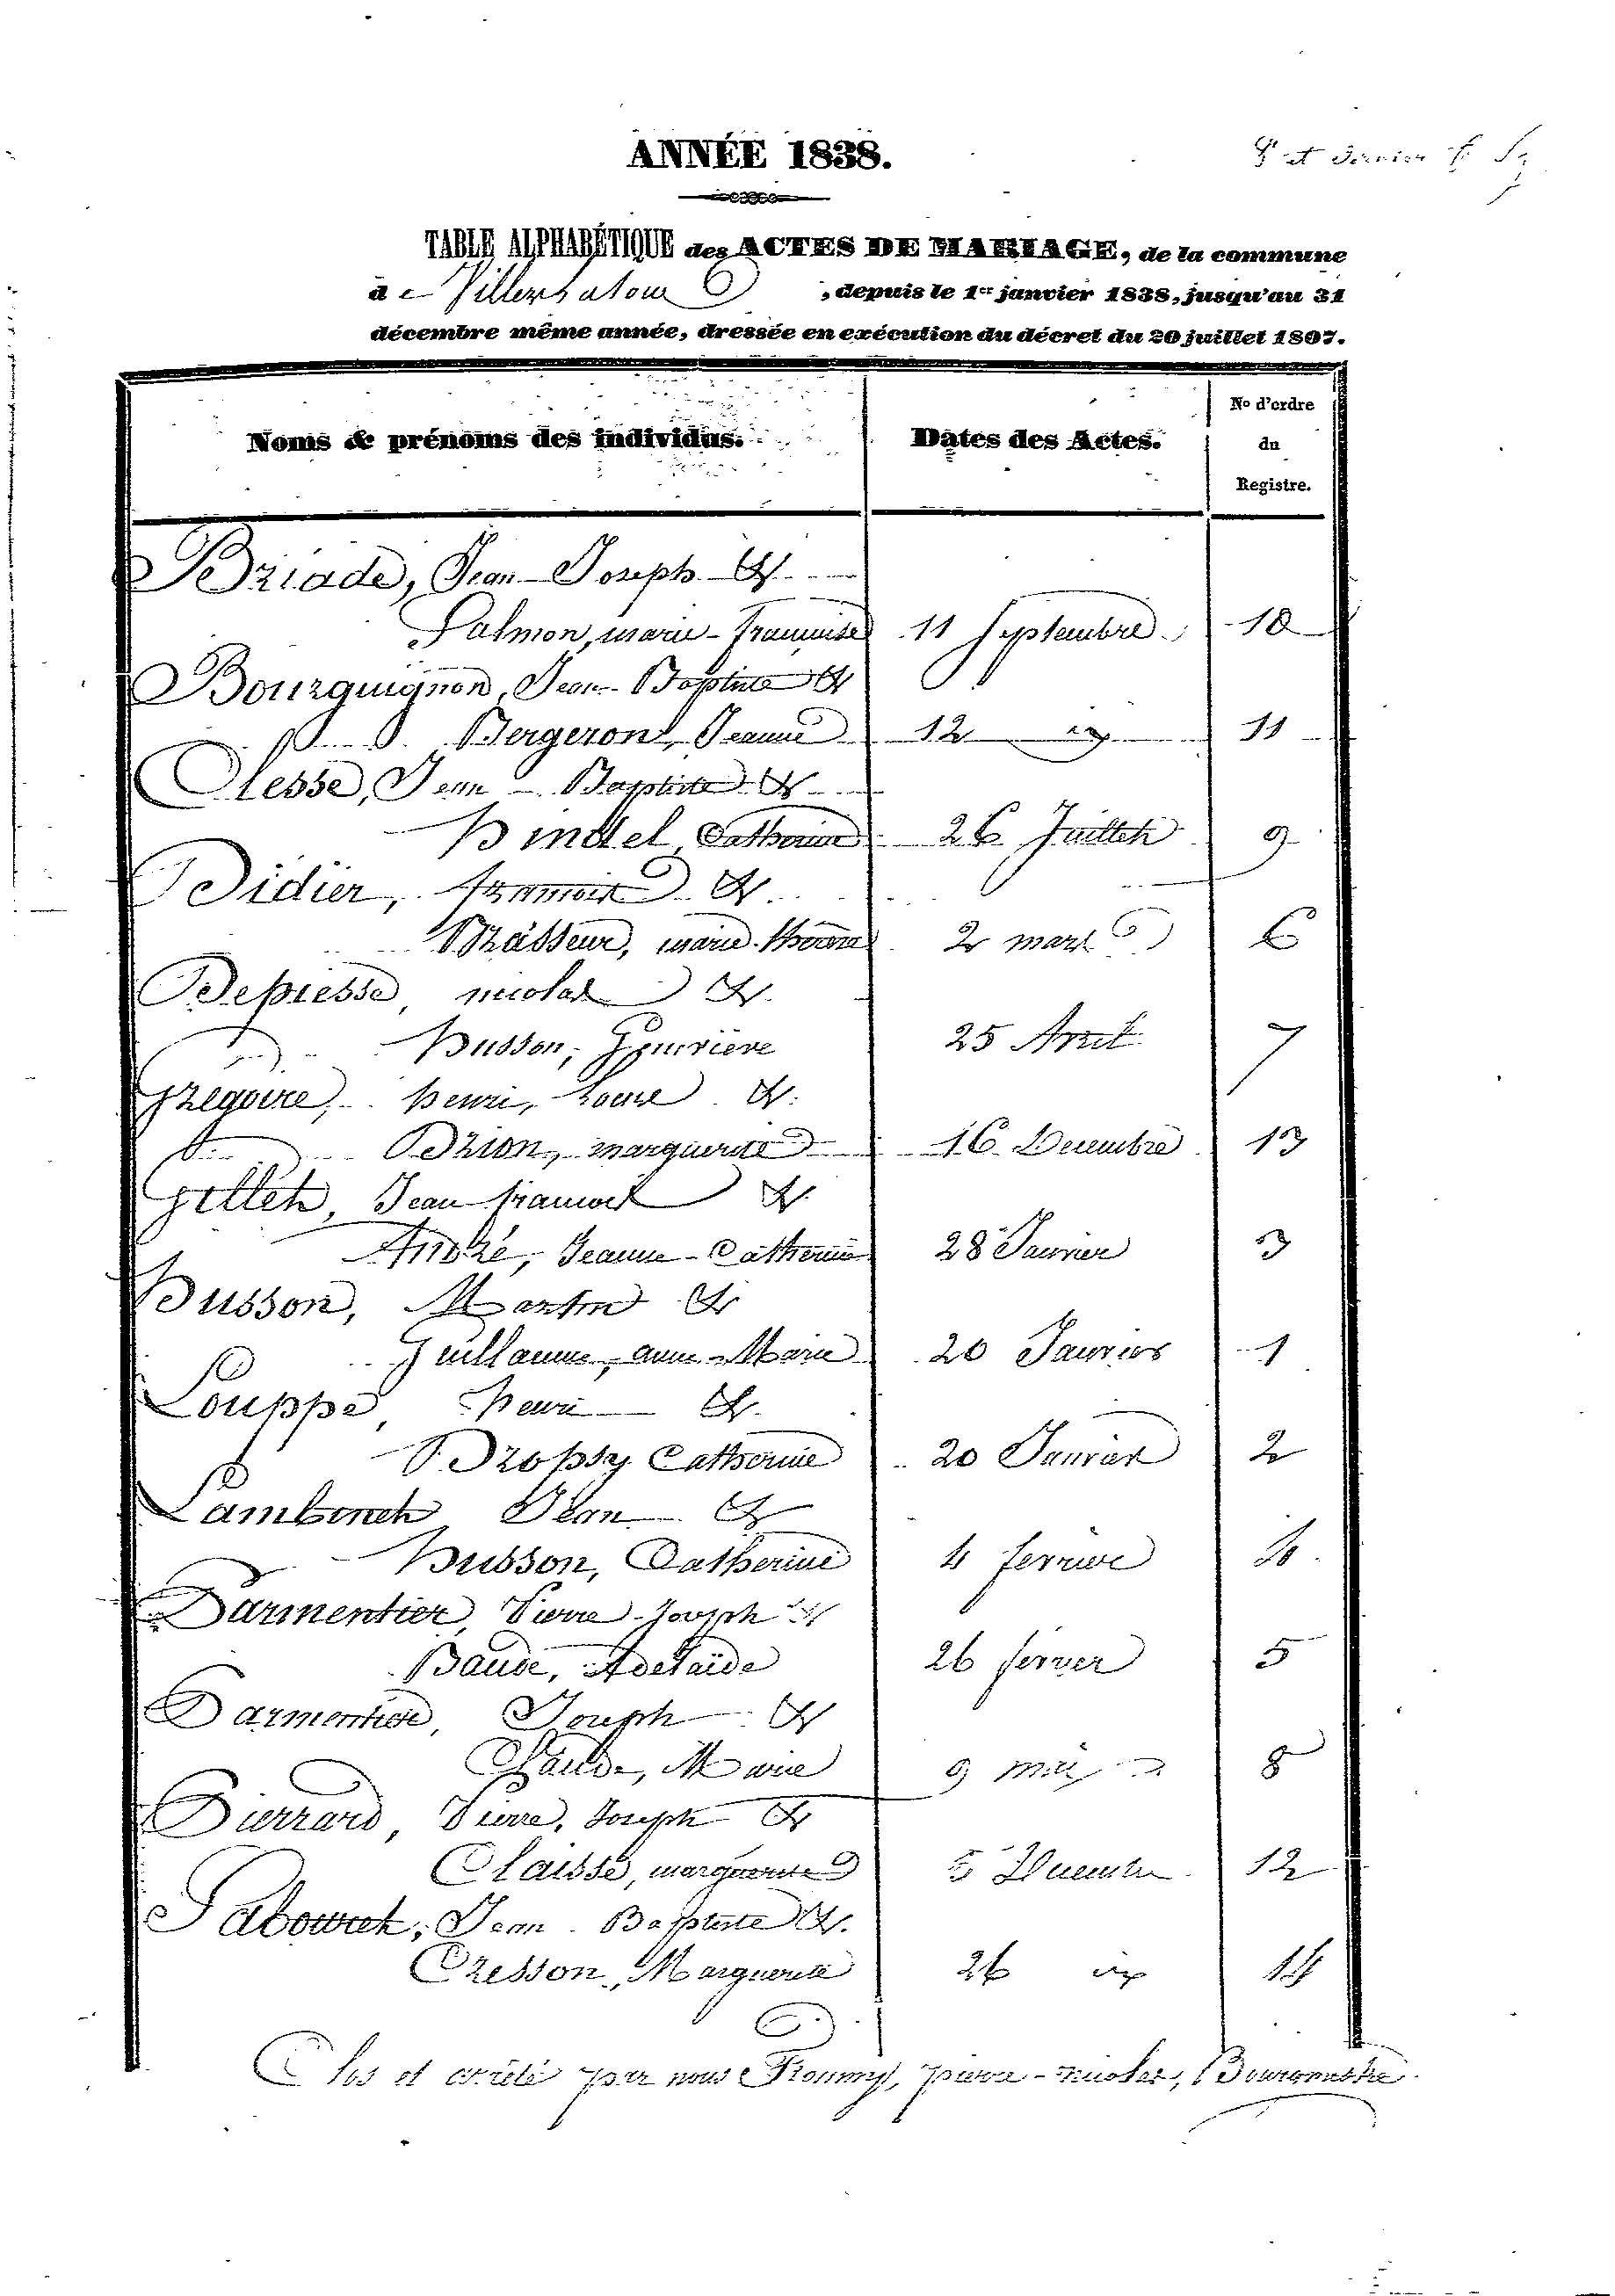 ANNÉE 1838.
et dernier f.
TABLE ALPHABÉTIQUE des ACTES DE MARIAGE, de la commune
de Villers la tour, depuis le 1er janvier 1838, jusqu'au 31
décembre même année, dressée en exécution du décret du 20 juillet 1807.
Noms & prénoms des individus. Dates des Actes. No d'ordre du Registre.
Briade, Jean-Joseph &
Salmon, marie-Françoise 11 Septembre 10
Bourguignon, Jean-Baptiste &
Bergeron, Jeanne 12 id 11
Clesse, Jean-Baptiste &
Hindel, Catherine 26 Juillet 9
Didier, françois &
Brasseur, marie 2 mars 6
Depiesse, nicolas &
Husson, Genevieve 25 Avril 7
Grégoire, henri, Louis &
Drion, marguerite 16 Decembre 13
Gillet, Jean françois &
André, Jeanne-Catherine 28 Janvier 3
Husson, Martin &
Guillaume, anne-Marie 20 Janvier 1
Louppe, henri &
Dropsy Catherine 20 Janvier 2
Lambinet Jean &
Husson, Catherine 4 fevrier 4
Parmentier, Pierre Joseph &
Baude, Adelaide 26 février 5
Parmentier, Joseph &
Baude, Marie 9 mai 8
Pierrard, Pierre, Joseph &
Claisse, marguerite 5 Decembre 12
Jean Baptiste &
Cresson, Marguerite 26 id 14
Clos et arrêté par nous Fromny, pierre-nicolas, Bourgmestre